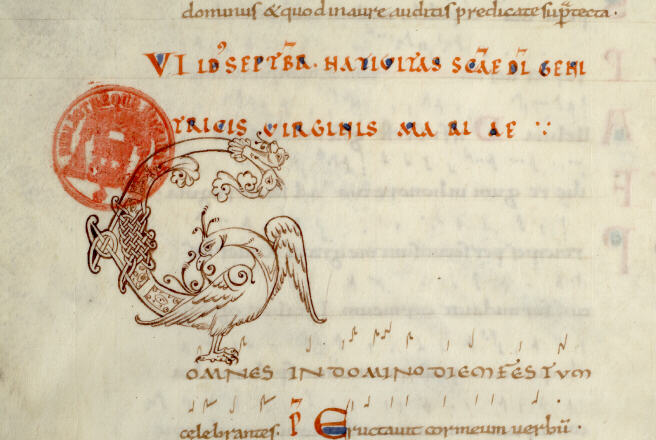 dominus & quod inaure auditis predicate sup̄tecta.
VI ID' SEPT̄BR̄. NATIVITAS SC̄AE DĪ GENI
TRICIS VIRGINIS MARIAE
G
OMNES IN DOMINO DIEM FESTVM
celebrantes. P̄ Eructavit cor meum uerbū.